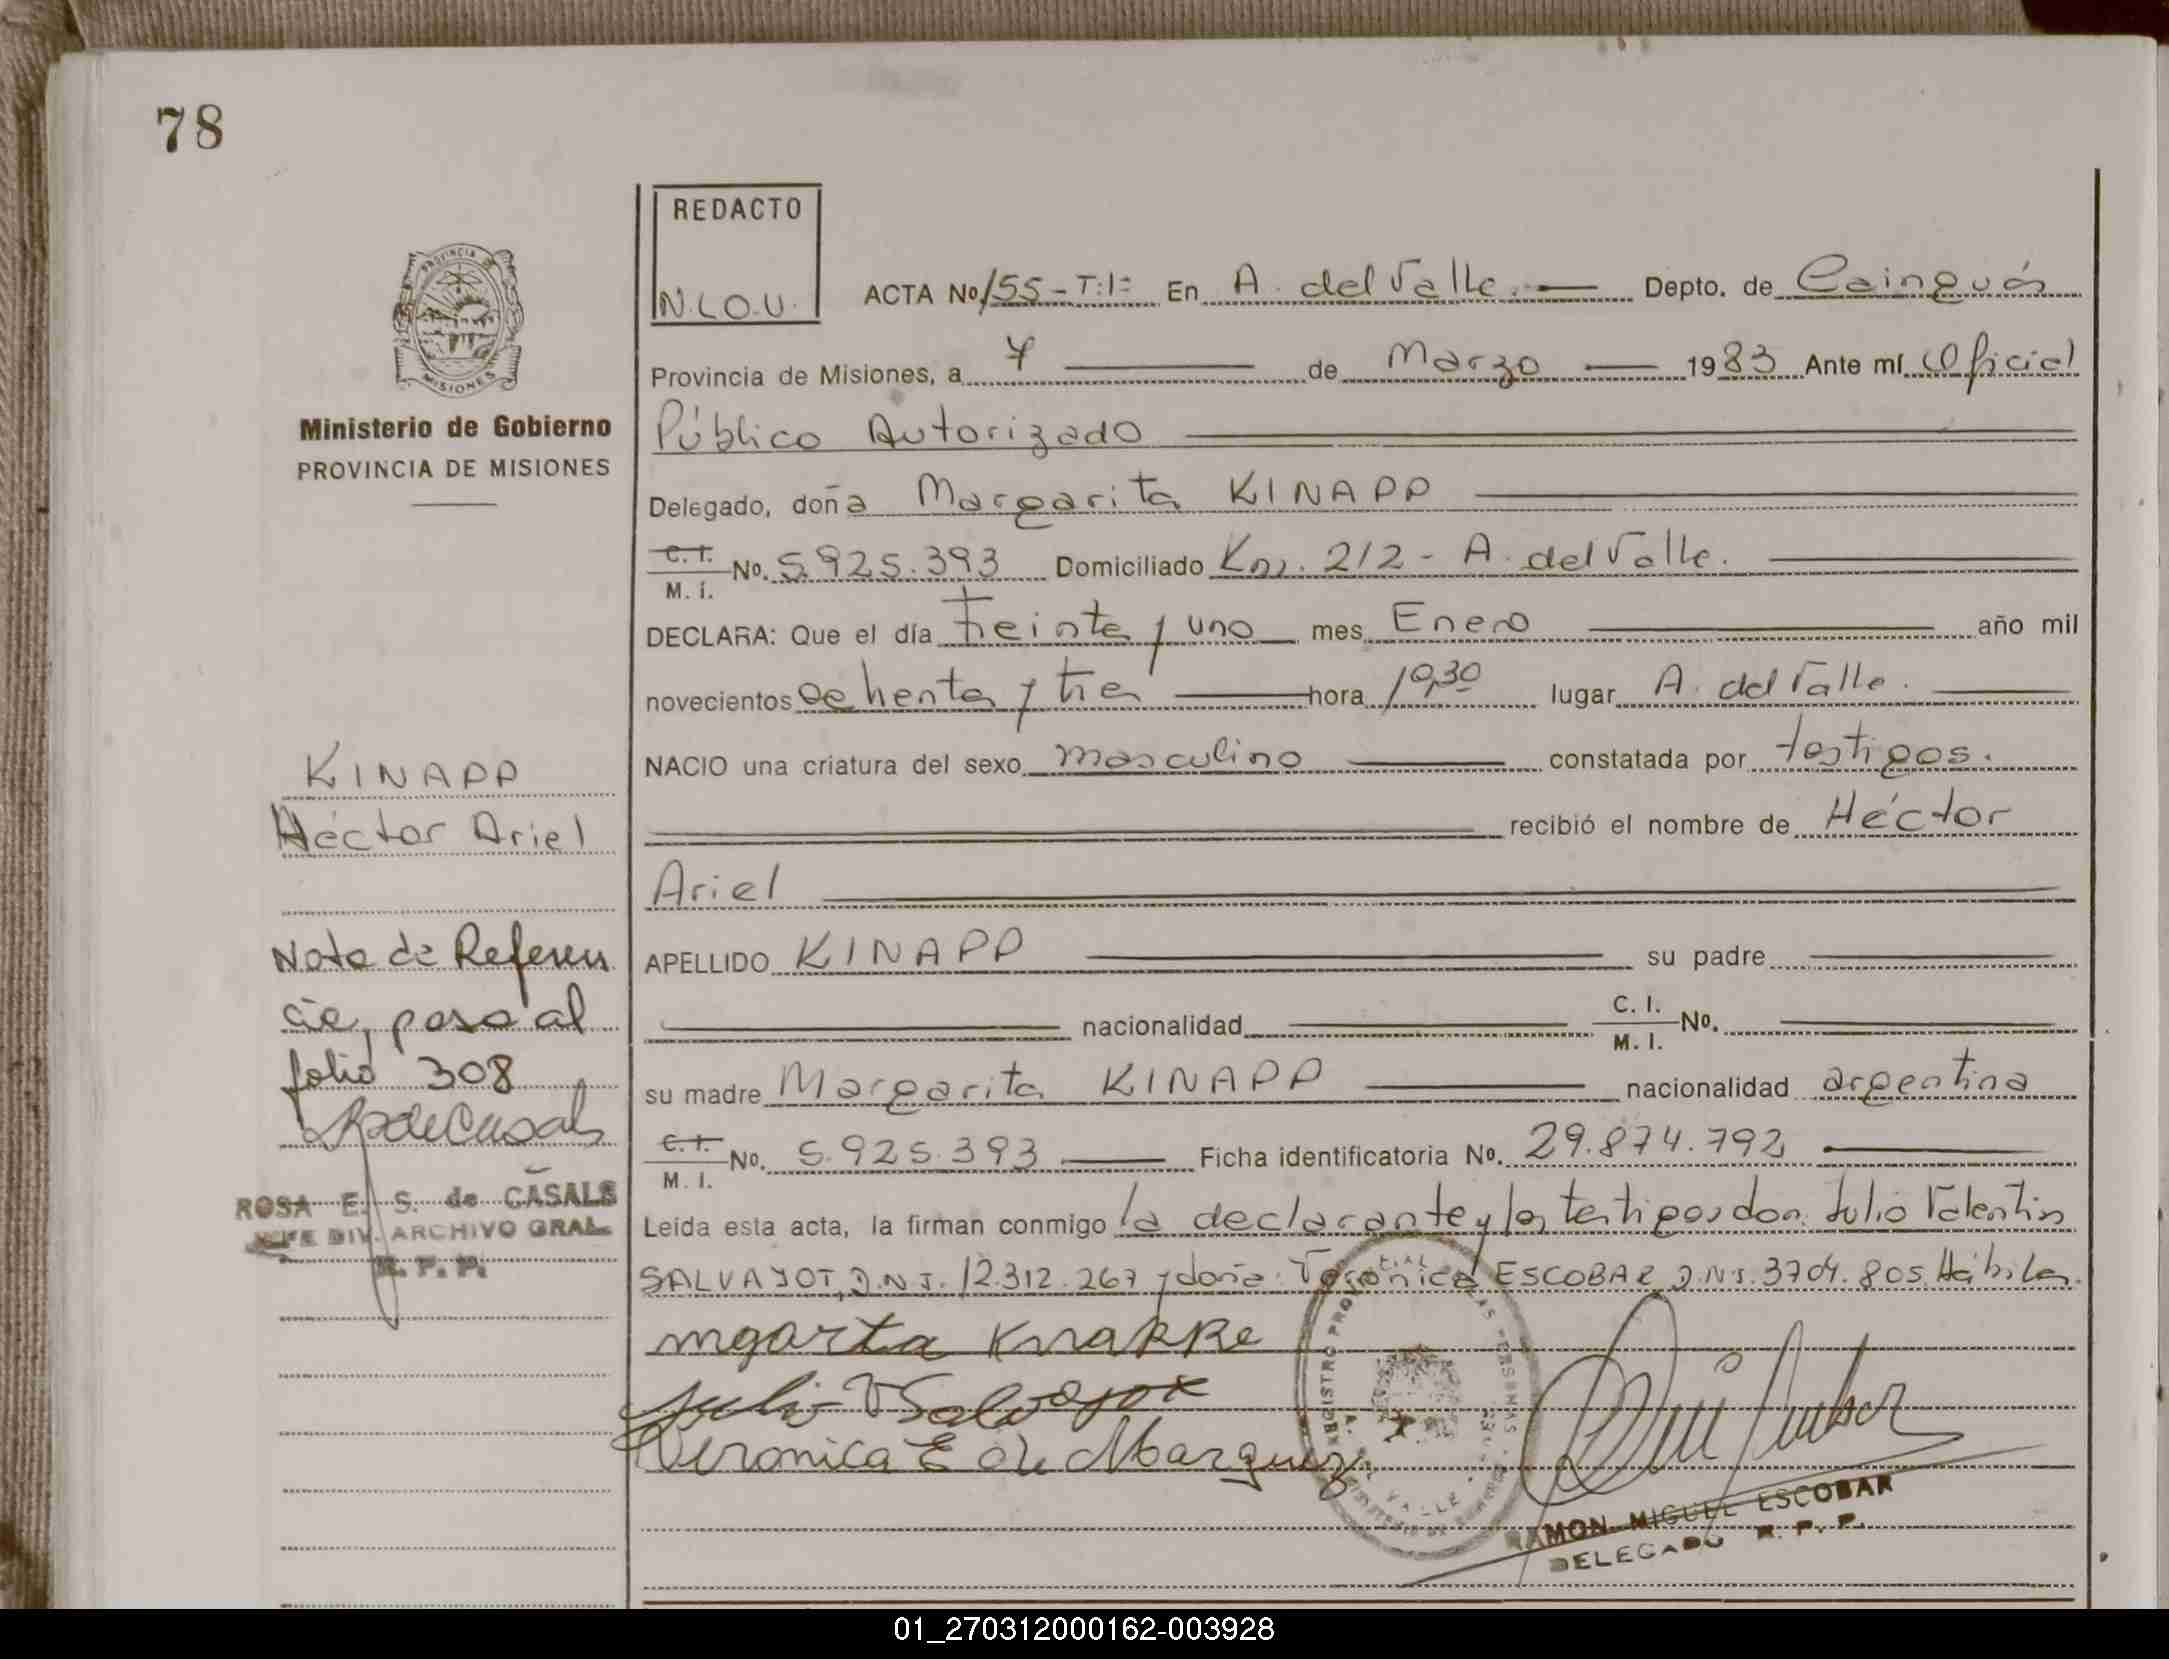 78
REDACTO
N.L.O.U.
PROVINCIA DE
MISIONES
Ministerio de Gobierno
PROVINCIA DE MISIONES
ACTA No 155-T:1= En A. del Valle. Depto. de Cainguás
Provincia de Misiones, a 7 de Marzo 1983 Ante mí Oficial
Público Autorizado
Delegado, doña Margarita KINAPP
C. I. M. I. No. 5.925.393 Domiciliado Km. 212 - A. del Valle.
DECLARA: Que el día treinta y uno mes Enero año mil
novecientos ochenta y tres hora 10,30 lugar A. del Valle.
NACIO una criatura del sexo masculino constatada por testigos.
recibió el nombre de Héctor
Ariel
APELLIDO KINAPP su padre
nacionalidad C. I. M. I. No.
su madre Margarita KINAPP nacionalidad argentina
C. I. M. I. No. 5.925.393 Ficha identificatoria No. 29.874.792
Leída esta acta, la firman conmigo la declarante y los testigos don. Julio Valentin
SALVAYOT, D.N.I. 12.312.267 y doña: Verónica ESCOBAR D.N.I. 3704.805. Hábiles.
mgarta Knappe
Julio V Salvayot
Veronica E de Marquez
RAMON MIGUEL ESCOBAR
DELEGADO R. P. P.
KINAPP
Héctor Ariel
Nota de Referen
cia, pasa al
folio 308
RdeCasals
ROSA E. S. de CASALS
JEFE DIV. ARCHIVO GRAL.
R. P. P.
01_270312000162-003928